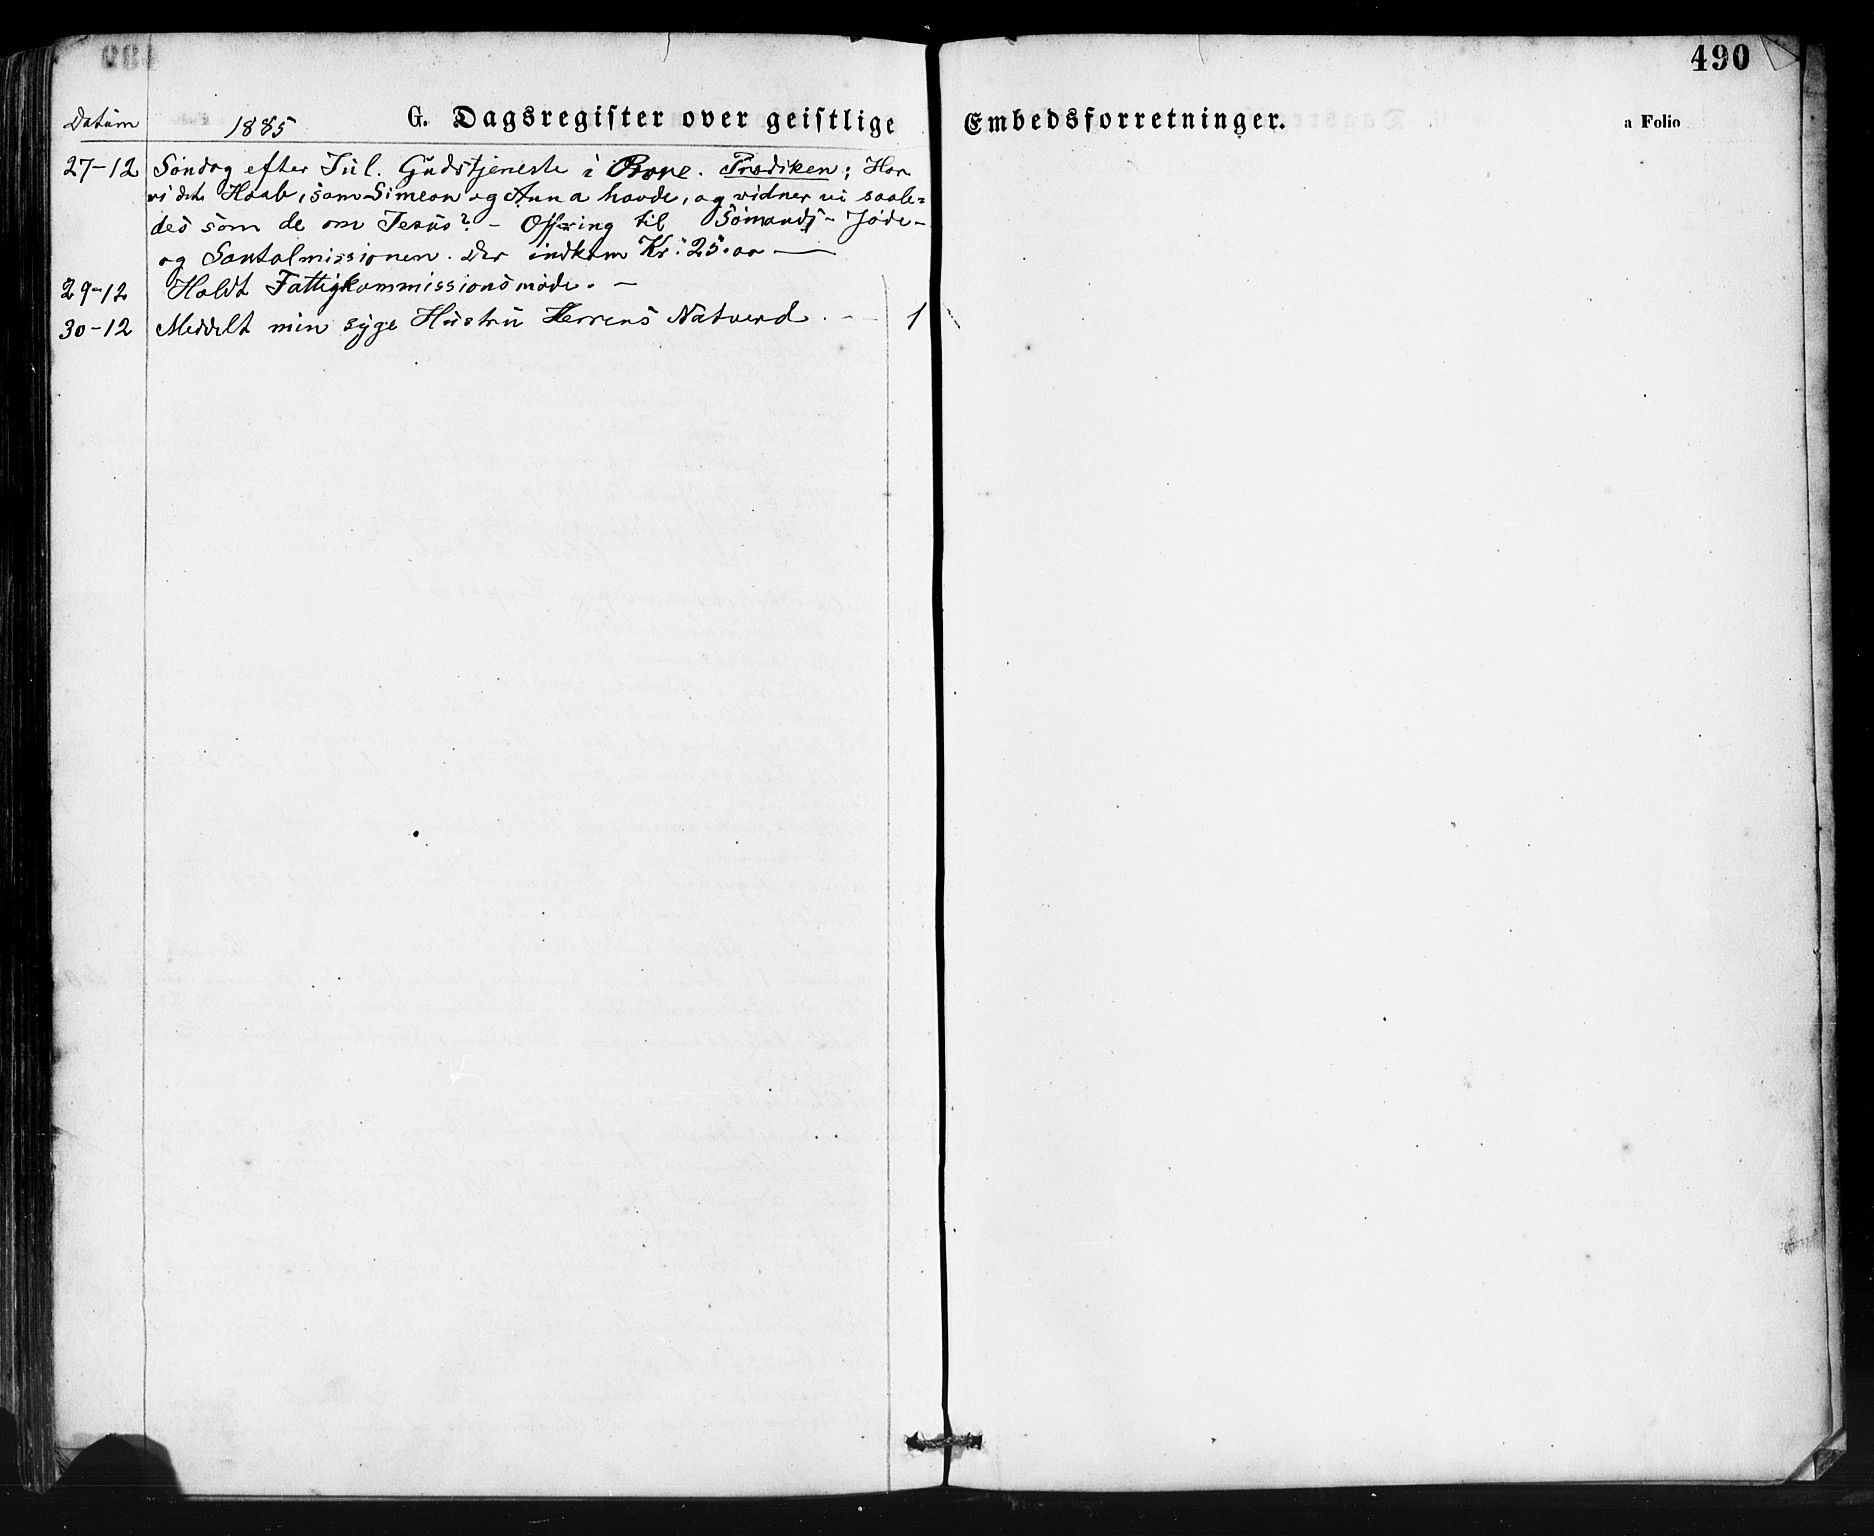 490
Datum 1885 G. Dagsregister over geistlige Embedsforretninger. a Folio
27-12 Søndag efter Jul. Gudstjeneste i Borre. Prædiken; Har
vi det Haab, som Simeon og Anna havde, og vidner vi saale=
des som de om Jesus? - Offring til Sømands- Jøde-
og Santalmissionen. Der indkom Kr: 25.00 —
29-12 Holdt Fattigkommissionsmøde. -
30-12 Meddelt min syge Hustru Herrens Natverd. - 1